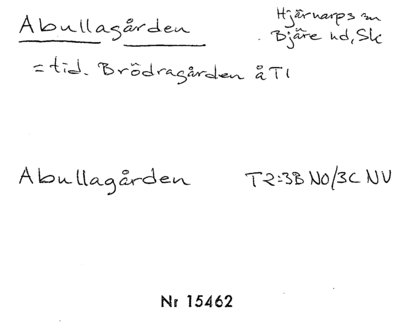 Abullagården
Hjärnarps sn
Bjäre hd, Sk
= tid. Brödragården å T1
Abullagården T2:3B NO/3C NV
Nr 15462